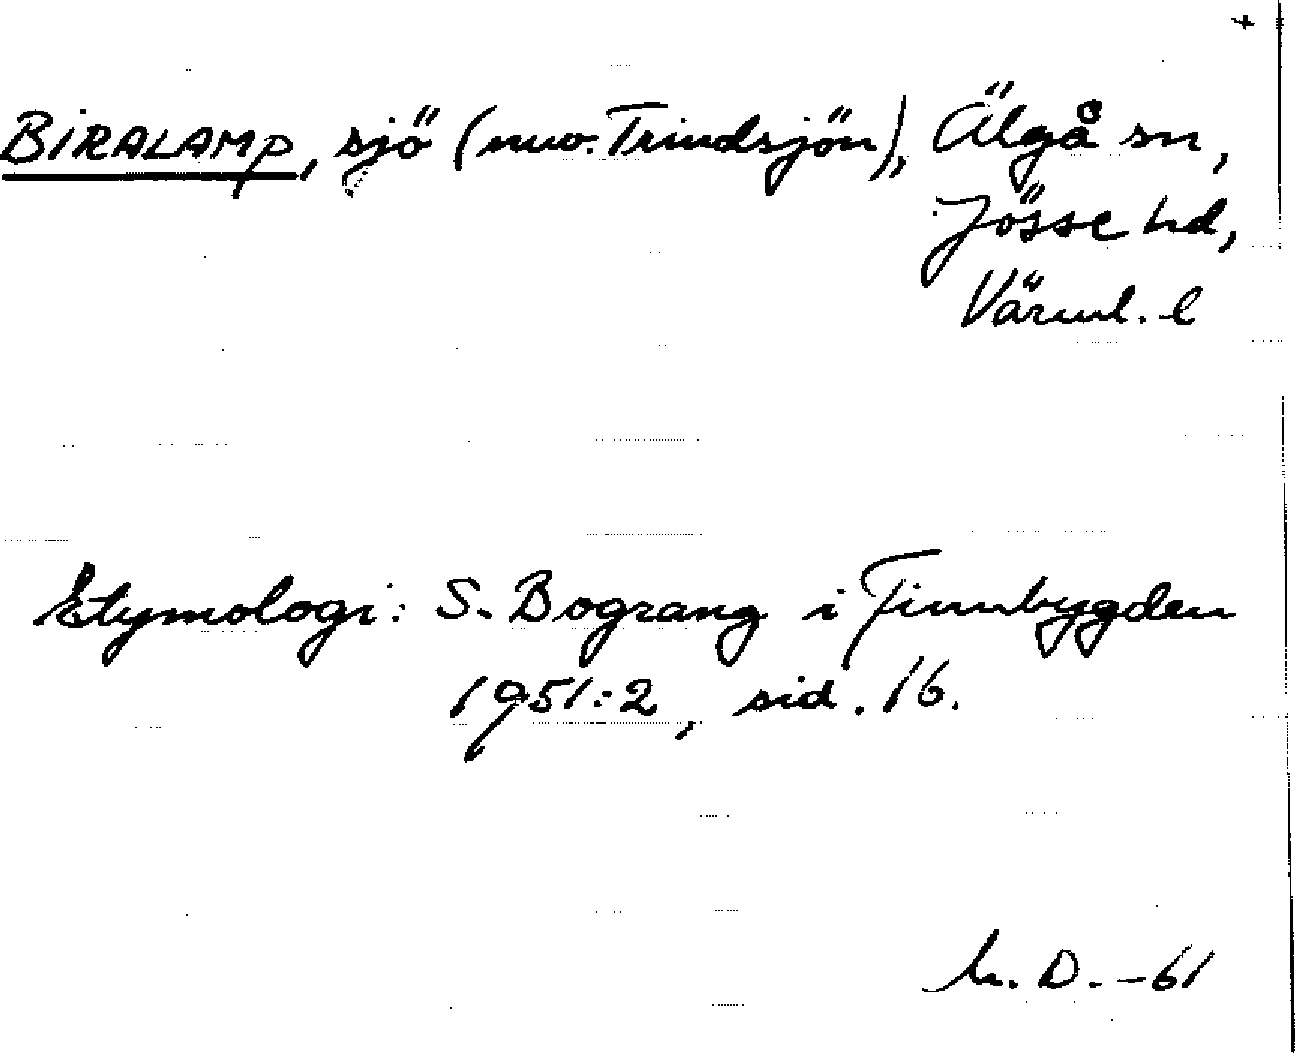 +
BIRALAMP, sjö (nuv. Trindsjön), Älgå sn,
Jösse hd,
Värml. l
Etymologi: S. Bograng i Finnbygden
1951:2, sid. 16.
D. -61